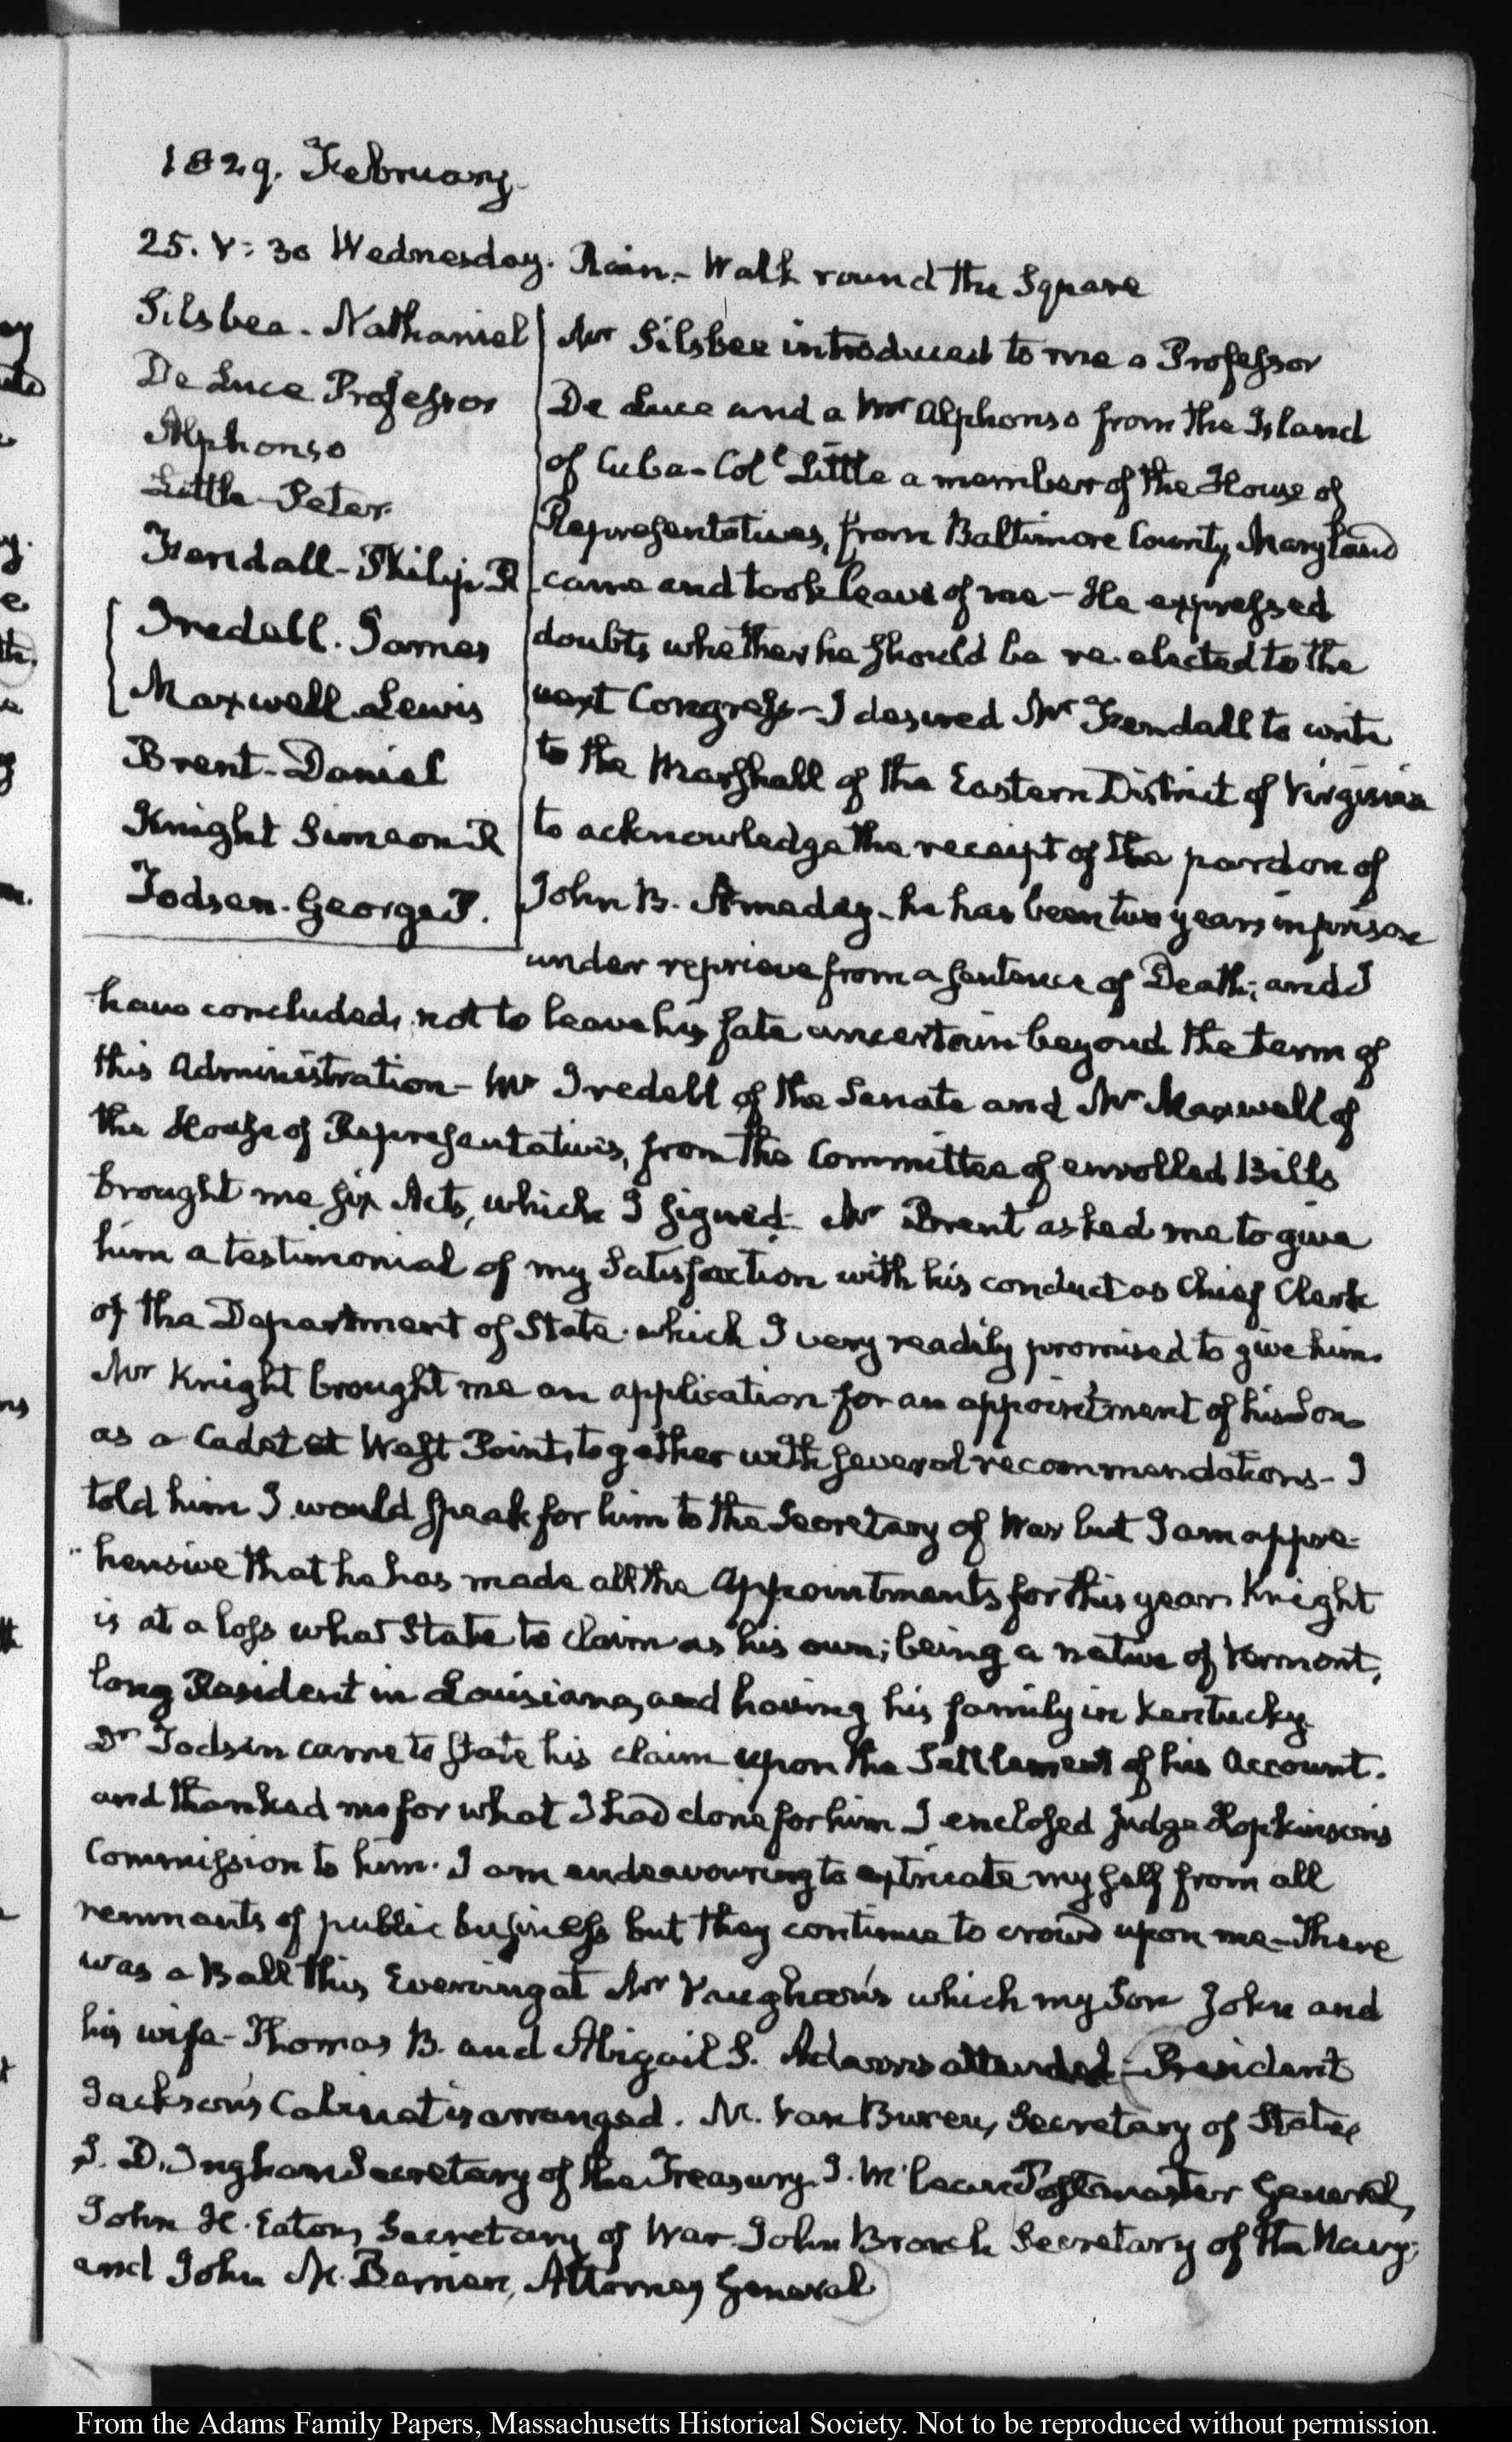 1829. February.
25. V: 30 Wednesday. Rain. Walk round the Square
Silsbee. Nathaniel
De Luce Professor
Alphonso
Little Peter.
Fendall Philip R
Iredell. James
Maxwell Lewis
Brent Daniel
Knight Simeon R
Todsen. George P.
Mr Silsbee introduced to me a Professor
De Luce and a Mr Alphonso from the Island
of Cuba- Coll Little a member of the House of
Representatives, from Baltimore County, Maryland
came and took leave of me- He expressed
doubts whether he should be re-elected to the
next Congress- I desired Mr Fendall to write
to the Marshall of the Eastern District of Virginia
to acknowledge the receipt of the pardon of
John B. Amaday- he has been two years in prison
under reprieve from a sentence of Death; and I
have concluded, not to leave his fate uncertain beyond the term of
this Administration- Mr Iredell of the Senate and Mr Maxwell of
the House of Representatives, from the Committee of enrolled Bills
brought me six Acts, which I signed- Mr Brent asked me to give
him a testimonial of my Satisfaction with his conduct as Chief Clerk
of the Department of State. which I very readily promised to give him.
Mr Knight brought me an application for an appointment of his Son
as a Cadet at West Point, together with several recommendations- I
told him I would speak for him to the Secretary of War but I am appre-
hensive that he has made all the appointments for this year. Knight
is at a loss what State to claim as his own; being a native of Vermont,
long Resident in Louisiana, and having his family in Kentucky.
Dr Todsen came to state his claim upon the Settlement of his Account.
and thanked me for what I had done for him I enclosed Judge Hopkinson's
Commission to him. I am endeavouring to extricate myself from all
remnants of public business but they continue to crowd upon me- There
was a Ball this Evening at Mr Vaughan's which my Son John and
his wife- Thomas B. and Abigail S. Adams attended- President
Jackson's Cabinet is arranged. M. Van Buren, Secretary of State,
S. D. Ingham Secretary of the Treasury. J. McLean Postmaster General,
John H. Eaton, Secretary of War. John Branch Secretary of the Navy,
and John M. Berrien, Attorney General
From the Adams Family Papers, Massachusetts Historical Society. Not to be reproduced without permission.